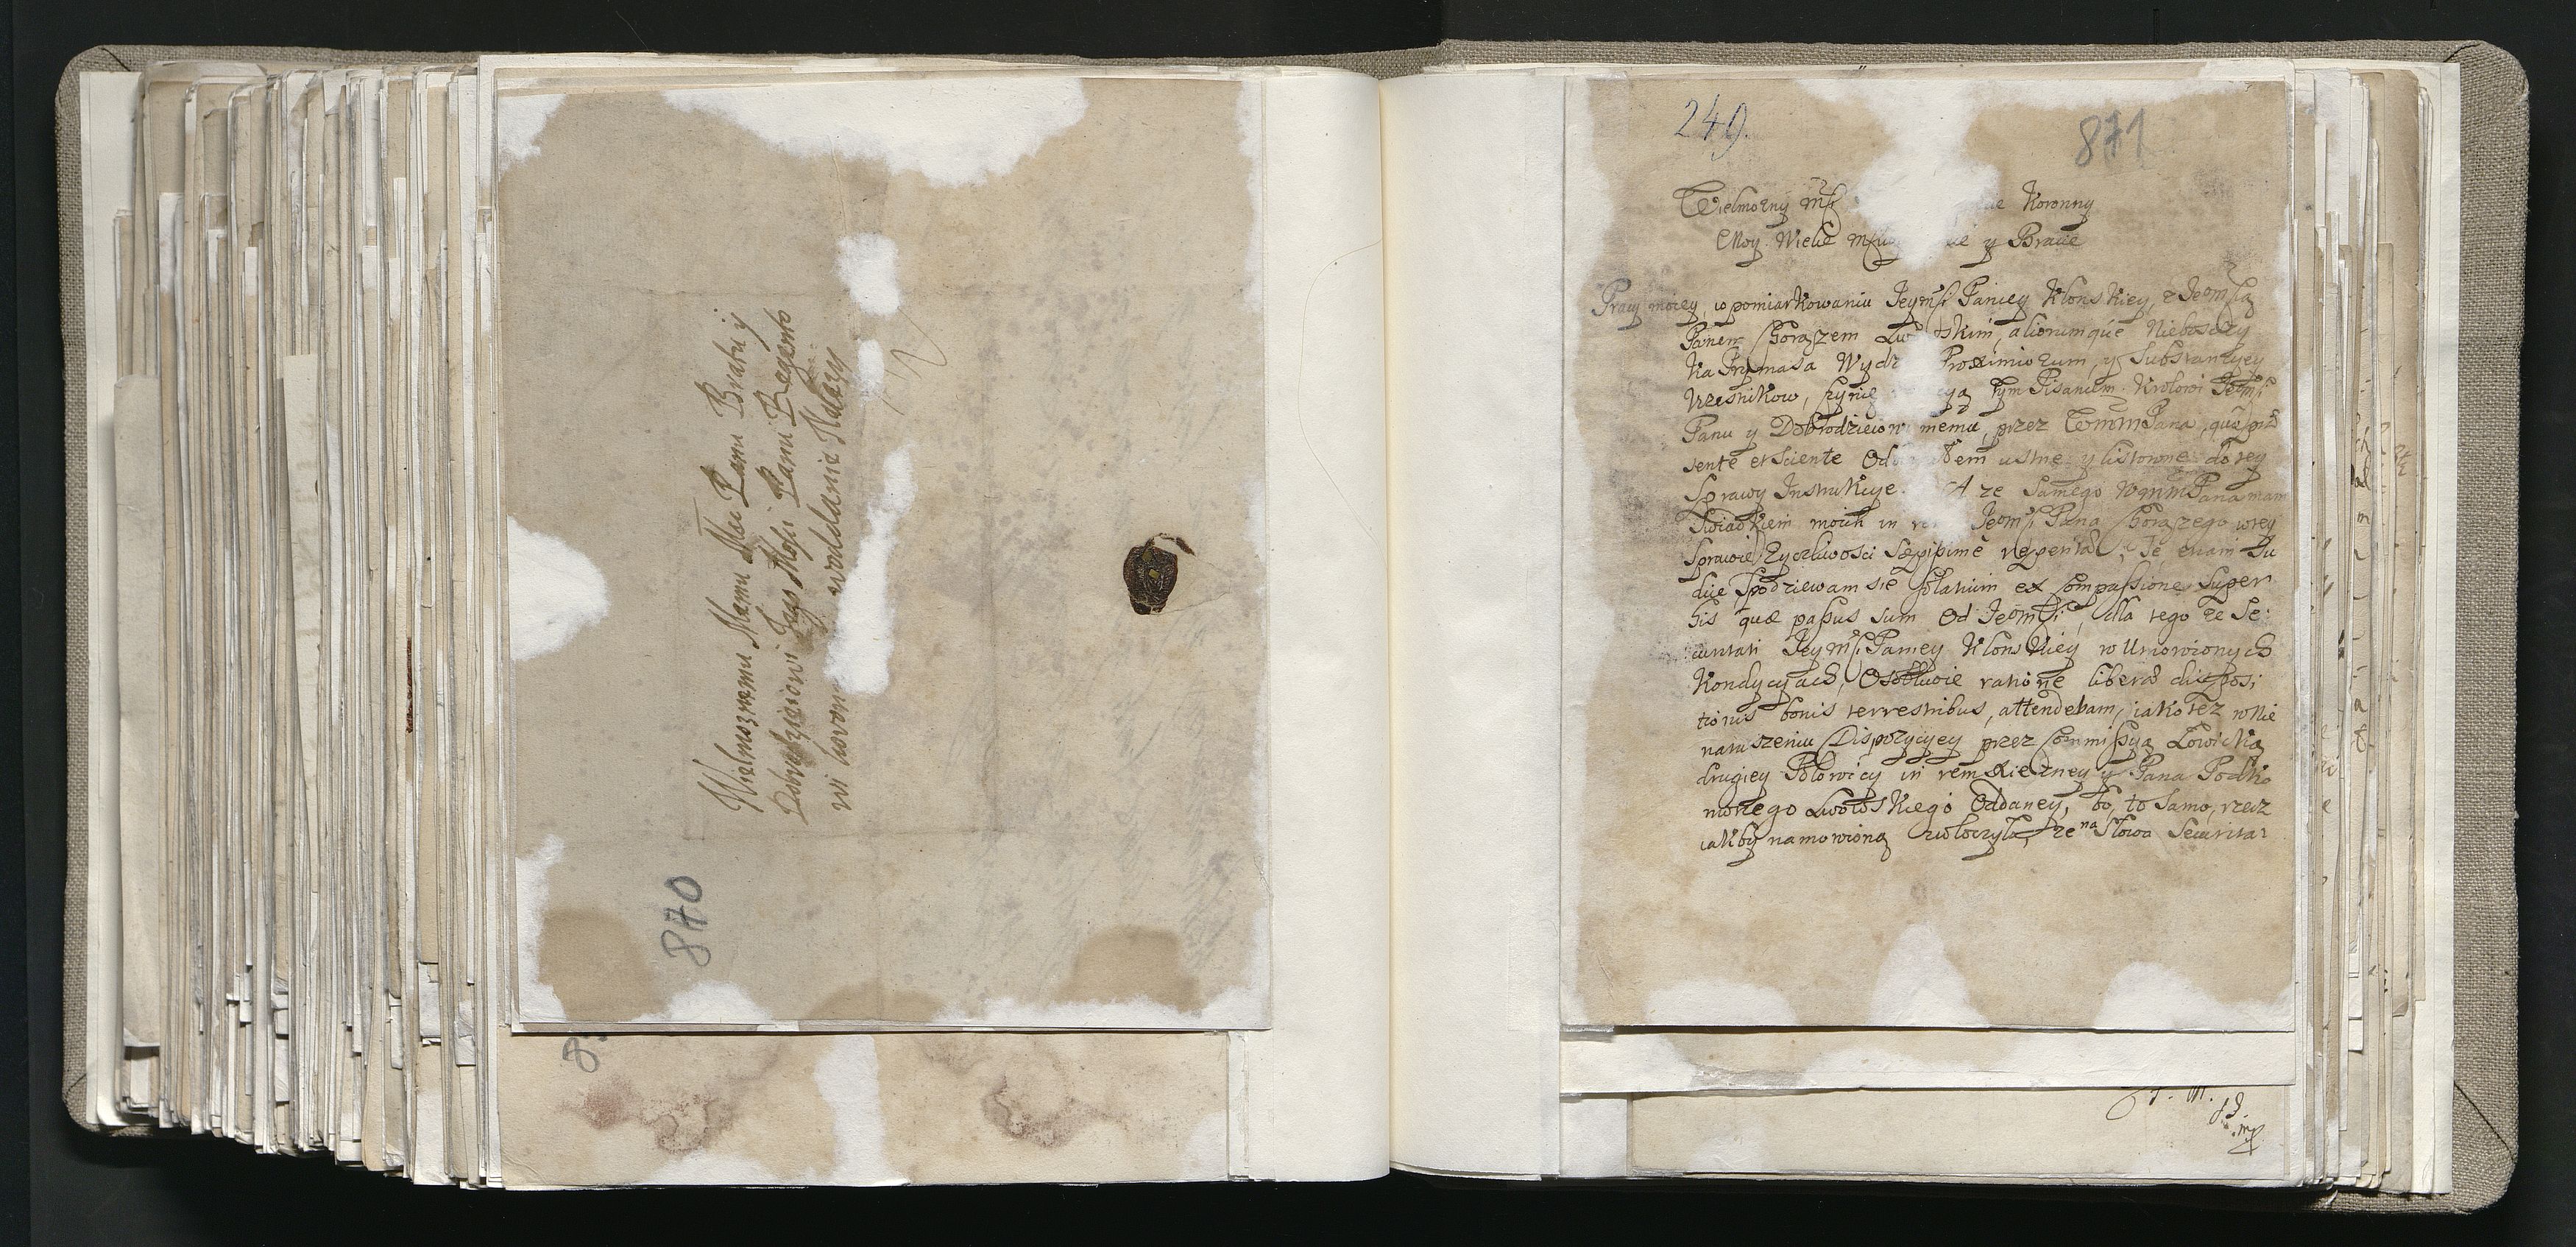 Wielmoznemu Memu Mci Panu Bratu y
Dobrodzieiowi Jego Mosci Panu Regento
wi koron woddanie Nalezy
870
8
249.
871
Wielmozny Mśći nie Koronny
Moy Wielce Mśći nie y Bracie
Pracy moiey, w pomiarkowaniu Jeymśći Paniey Klonskiey, z Jeomśćią
Panem Chorązem Lwo skim, aliorumque Nieboszczy
ka Prymasa Wydz Proximiorum, y Substancyey
Urzesnikow, czynię cyą tym Pisaniem Krolowi Jeomśći
Panu y Dobrodzieiow memu, przez WmmPana, quo prae
sente et sciente Od em ustne y listowne do tey
Sprawy Instrukcye. A ze samego WmmPana mam
Swiadkiem moich in re Jeomśći Pana Chorązego w tey
Sprawie Zyczliwosci saepissime repenta
die spodziewam sie solatium ex compassione super
his quae passus sum Od Jeomśći, dla tego ze Se
curitati Jeymśći Paniey Klonskiey w Umowionych
Kondycyach, Osobliwie ratione liberae disposi
tionis bonis terrestribus, attendebam, iako tez w Nie
naruszeniu Dispozycyey przez Commissyą Łowicką
drugiey Połowicy in rem Xiezney y Pana Podko
morzego Lwowskiego Oddaney, bo to samo, rzecz
iakby namowioną zwłoczyło, ze na słowa Securitat